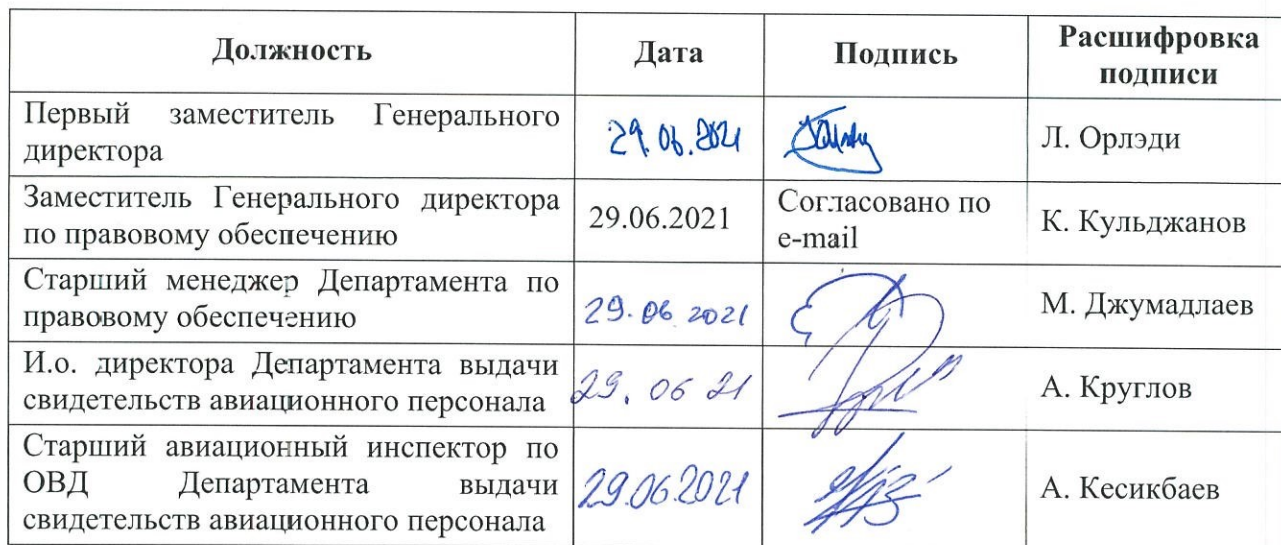 Должность Дата Подпись Расшифровка
подписи
Первый заместитель Генерального
директора 29.06.2021 Л. Орлэди
Заместитель Генерального директора
по правовому обеспечению 29.06.2021 Согласовано по
e-mail К. Кульджанов
Старший менеджер Департамента по
правовому обеспечению 29.06 2021 М. Джумадлаев
И.о. директора Департамента выдачи
свидетельств авиационного персонала 29. 06 21 А. Круглов
Старший авиационный инспектор по
ОВД Департамента выдачи
свидетельств авиационного персонала 29.06.2021 А. Кесикбаев